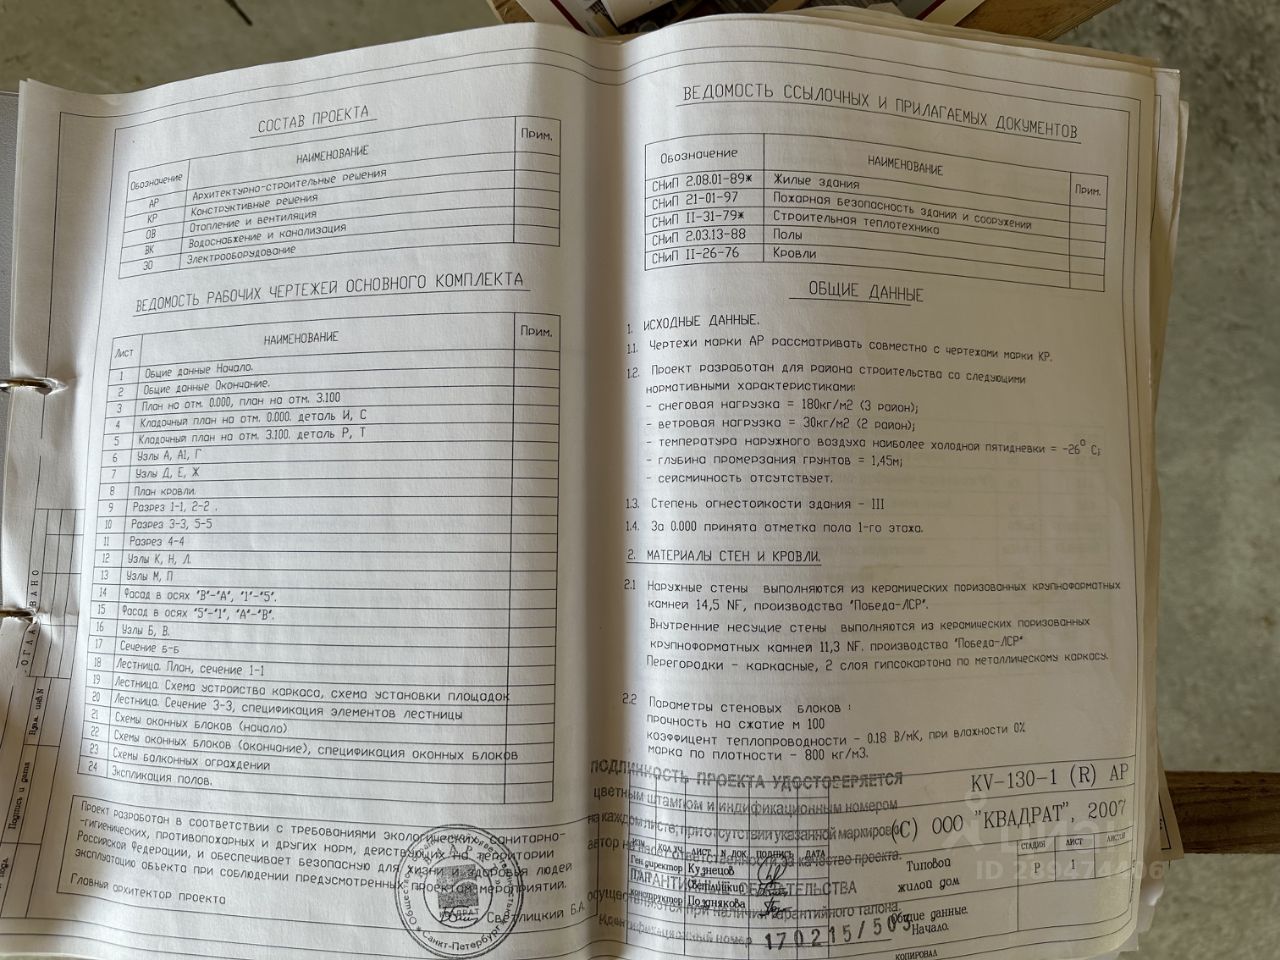 СОСТАВ ПРОЕКТА
Обозначение НАИМЕНОВАНИЕ Прим.
АР Архитектурно-строительные решения
КР Конструктивные решения
ОВ Отопление и вентиляция
ВК Водоснабжение и канализация
ЭО Электрооборудование
ВЕДОМОСТЬ РАБОЧИХ ЧЕРТЕЖЕЙ ОСНОВНОГО КОМПЛЕКТА
Лист НАИМЕНОВАНИЕ Прим.
1 Общие данные Начало.
2 Общие данные Окончание.
3 План на отм. 0.000, план на отм. 3.100
4 Кладочный план на отм. 0.000. деталь И, С
5 Кладочный план на отм. 3.100. деталь Р, Т
6 Узлы А, А1, Г
7 Узлы Д, Е, Ж
8 План кровли.
9 Разрез 1-1, 2-2 .
10 Разрез 3-3, 5-5
11 Разрез 4-4
12 Узлы К, Н, Л.
13 Узлы М, П
14 Фасад в осях "В"-"А", "1"-"5".
15 Фасад в осях "5"-"1", "А"-"В".
16 Узлы Б, В.
17 Сечение Б-Б
18 Лестница. План, сечение 1-1
19 Лестница. Схема устройства каркаса, схема установки площадок
20 Лестница. Сечение 3-3, спецификация элементов лестницы
21 Схемы оконных блоков (начало)
22 Схемы оконных блоков (окончание), спецификация оконных блоков
23 Схемы балконных ограждений
24 Экспликация полов.
Проект разработан в соответствии с требованиями экологических, санитарно-
-гигиенических, противопожарных и других норм, действующих на территории
Российской Федерации, и обеспечивает безопасную для жизни и здоровья людей
эксплуатацию объекта при соблюдении предусмотренных проектом мероприятий.
Главный архитектор проекта Светлицкий Б.А.
КВАДРАТ
Санкт-Петербург
ВЕДОМОСТЬ ССЫЛОЧНЫХ И ПРИЛАГАЕМЫХ ДОКУМЕНТОВ
Обозначение НАИМЕНОВАНИЕ Прим.
СНиП 2.08.01-89* Жилые здания
СНиП 21-01-97 Пожарная безопасность зданий и сооружений
СНиП II-31-79* Строительная теплотехника
СНиП 2.03.13-88 Полы
СНиП II-26-76 Кровли
ОБЩИЕ ДАННЫЕ
1. ИСХОДНЫЕ ДАННЫЕ.
1.1. Чертежи марки АР рассматривать совместно с чертежами марки КР.
1.2. Проект разработан для района строительства со следующими
нормативными характеристиками:
- снеговая нагрузка = 180кг/м2 (3 район);
- ветровая нагрузка = 30кг/м2 (2 район);
- температура наружного воздуха наиболее холодной пятидневки = -26° С;
- глубина промерзания грунтов = 1,45м;
- сейсмичность отсутствует.
1.3. Степень огнестойкости здания - III
1.4. За 0.000 принята отметка пола 1-го этажа.
2. МАТЕРИАЛЫ СТЕН И КРОВЛИ.
2.1 Наружные стены выполняются из керамических поризованных крупноформатных
камней 14,5 NF, производства "Победа-ЛСР".
Внутренние несущие стены выполняются из керамических поризованных
крупноформатных камней 11,3 NF. производства "Победа-ЛСР"
Перегородки - каркасные, 2 слоя гипсокартона по металлическому каркасу.
2.2 Параметры стеновых блоков :
прочность на сжатие м 100
коэффицент теплопроводности - 0.18 В/мК, при влажности 0%
марка по плотности - 800 кг/м3.
ПОДЛИННОСТЬ ПРОЕКТА УДОСТОВЕРЯЕТСЯ
цветным штампом и индификационным номером
на каждом листе, при отсутствии указанной маркировки
автор не несет ответственность за качество проекта.
ГАРАНТИЙНЫЕ ОБЯЗАТЕЛЬСТВА
осуществляются при наличии гарантийного талона.
Идентификационный номер 170215/503
KV-130-1 (R) АР
(С) ООО "КВАДРАТ", 2007
ИЗМ КОЛ.УЧ ЛИСТ N ДОК ПОДПИСЬ ДАТА
Ген.директор Кузнецов
Светлицкий
конструктор Позднякова
Типовой
жилой дом
СТАДИЯ ЛИСТ ЛИСТОВ
Р 1
Общие данные.
Начало.
КОПИРОВАЛ
СОГЛАСОВАНО
Взам. инв.N
Подпись и дата
ID 289474406